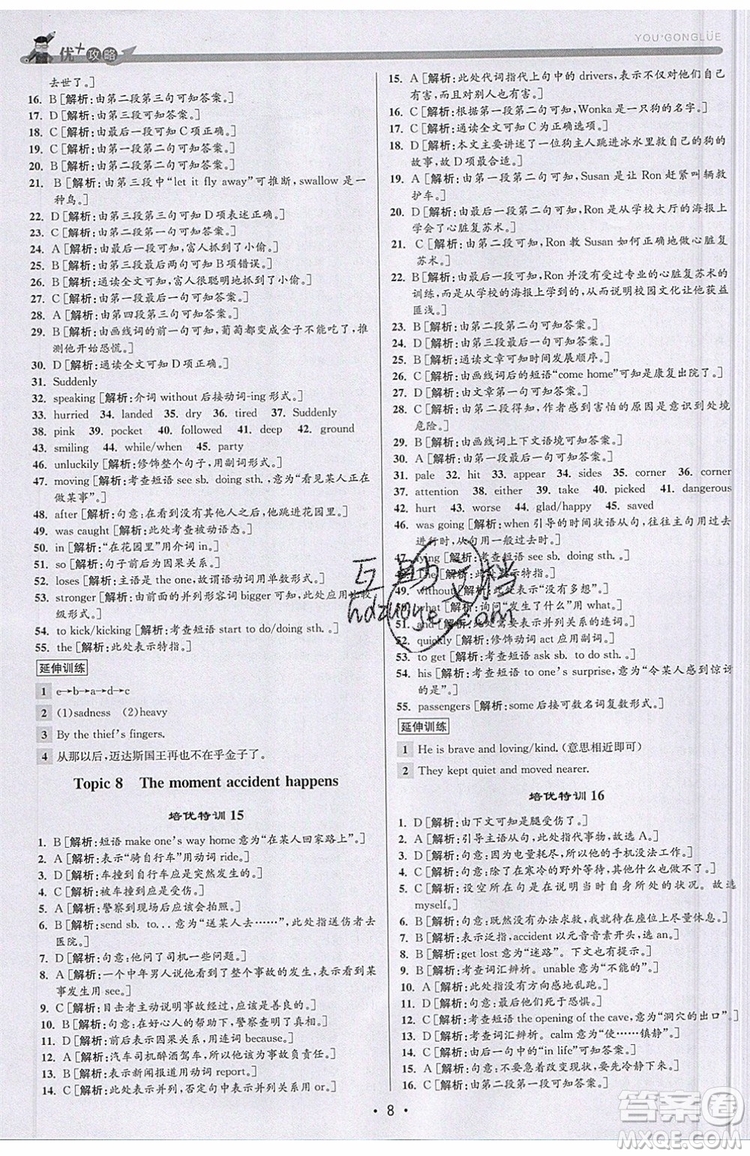 优+攻略
YOU+GONGLÜE
去世了。]
16. B [解析:由第二段第三句可知答案。]
17. B [解析:由第三段可知答案。]
18. C [解析:由最后一段可知C项正确。]
19. C [解析:由最后一句可知答案。]
20. B [解析:由第二段第二句可知答案。]
21. B [解析:由第三段中“let it fly away”可推断,swallow 是一
种鸟。]
22. D [解析:由第三段第三句可知D项表述正确。]
23. C [解析:由第三段第二句可知答案。]
24. A [解析:由最后一段可知,富人抓到了小偷。]
25. B [解析:由第三段第二句可知B项错误。]
26. B [解析:通读全文可知,富人很聪明地抓到了小偷。]
27. C [解析:由第一段第三句可知答案。]
28. A [解析:由第二段前两句可知答案。]
29. B [解析:由画线词的前一句可知,葡萄都变成金子不能吃,推
测他开始恐慌。]
30. D [解析:通读全文可知D项正确。]
31. Suddenly
32. speaking [解析:介词 without 后接动词-ing 形式。]
33. hurried 34. landed 35. dry 36. tired 37. Suddenly
38. pink 39. pocket 40. followed 41. deep 42. ground
43. smiling 44. while/when 45. party
46. unluckily [解析:修饰整个句子,用副词形式。]
47. moving [解析:考查短语 see sb. doing sth.,意为“看见某人正在
做某事”。]
48. after [解析:句意:在没有看到其他人之后,他跳进花园里。]
49. was caught [解析:此处考查被动语态。]
50. in [解析:“在花园里”用介词 in。]
51. so [解析:句子前后为因果关系。]
52. loses [解析:主语是 the one,故谓语动词用单数形式。]
53. D [解析:由前面的并列形容词 bigger 可知,此处也用比较
级形式。]
54. to kick/kicking [解析:考查短语 start to do/doing sth.。]
55. the [解析:此处表示特指。]
延伸训练
1 e→b→a→d→c
2 (1)sadness (2)heavy
3 By the thief's fingers.
4 从那以后,迈达斯国王再也不在乎金子了。
Topic 8 The moment accident happens
培优特训 15
1. B [解析:短语 make one's way home 意为“在某人回家路上”。]
2. A [解析:表示“骑自行车”用动词 ride。]
3. D [解析:车撞到自行车应是突然发生的。]
4. C [解析:被车撞到应是受伤。]
5. A [解析:警察到现场后,应是停下车。]
6. B [解析:send sb. to... 意为“送某人去……”,此处指送伤者去
医院。]
7. D [解析:句意:他问了司机一些问题。]
8. A [解析:句意:电车司机说他看到了整个事故的发生。表示看到某
事发生用 see。]
9. C [解析:目击者主动提供情况,应该是善良的。]
10. B [解析:句意:在好心人的帮助下,警察查明了真相。]
11. D [解析:表示前后因果关系,用连词 so。]
12. A [解析:汽车司机醉酒驾车,他应该为此事故负责。]
13. B [解析:听到这一消息后,司机应该是难过的。]
14. C [解析:此处表示并列,否定句中表示并列关系用 or。]
15. A [解析:此处代词指代上句中的 drivers,表示不仅对他们自己
有害,而且对别人也有害。]
16. C [解析:根据第一段第一句可知,Wonka 是一只狗的名字。]
17. C [解析:通读全文可知C为正确选项。]
18. D [解析:本文主要讲述了一位狗主人跳进冰水里救自己的狗的
故事,故D项最合适。]
19. C [解析:由第一段最后一句可知,Susan 是让 Ron 赶紧叫一辆
救护车。]
20. D [解析:由最后一段第一句可知,Ron 是从学校大厅的海报上
学会了心脏复苏术。]
21. C [解析:由第二段可知,Ron 教 Susan 如何正确地做心脏复
苏术。]
22. B [解析:由最后一段可知,Ron 并没有受过专业的心脏复苏术的
训练,而是从学校的海报上学会的,从而说明校园文化让他获益
匪浅。]
23. B [解析:由第二段第二句可知答案。]
24. D [解析:由第二段第一句可知答案。]
25. B [解析:通读文章可知时间发展顺序。]
26. C [解析:由画线词后的短语“come home”可知是康复出院了。]
27. D [解析:由文章第一句可知。]
28. C [解析:由第二段得知,作者感到害怕的原因是意识到处境
危险。]
29. B [解析:由画线词上下文语境可知答案。]
30. A [解析:由最后一句可知答案。]
31. pale 32. hit 33. appear 34. sides 35. corner 36. corner
37. attention 38. either 39. take 40. picked 41. dangerous
42. hurt 43. worse 44. glad/happy 45. saved
46. was going [解析:when 引导的时间状语从句,从句要用过去
进行时。]
47. lying [解析:考查短语 see sb. doing sth.。]
48. The [解析:此处表示特指。]
49. without [解析:此处表示“没有多想”。]
50. what [解析:询问“发生了什么”用 what。]
51. and [解析:此处表示并列关系。]
52. quickly [解析:修饰动词 act 应用副词。]
53. to get [解析:考查短语 ask sb. to do sth.。]
54. his [解析:考查短语 to one's surprise,意为“令某人感到惊讶
的是”。]
55. passengers [解析:some 后接可数名词复数形式。]
延伸训练
1 He is brave and loving/kind. (意思相近即可)
2 They kept quiet and moved nearer.
培优特训 16
1. D [解析:由下文可知是腿受伤了。]
2. A [解析:引导主语从句,且表示事故发生的时间,故选A。]
3. B [解析:句意:因为电量耗尽,所以他的手机没法工作。]
4. D [解析:句意:他除了在寒冷的野外等待外,其他什么也做不了。]
5. C [解析:设空所在句是在叙述自身所处的状况。故选
myself。]
6. B [解析:句意:既然没有办法求救,我就待在座位上尽量休息。]
7. B [解析:表示泛指,accident 以元音音素开头,故选 an。]
8. D [解析:get lost 意为“迷路”。下文也有提示。]
9. A [解析:考查词汇辨析。unable 意为“不能的”。]
10. D [解析:句意:他们最后死于恐惧。]
11. A [解析:考查短语 the opening of the cave,意为“洞穴的出口”。]
12. B [解析:考查词汇辨析。calm 意为“镇静”。]
13. A [解析:由最后一句中的“in life”可知。]
14. C [解析:由第二段第一句可知答案。]
· 8 ·
答案圈